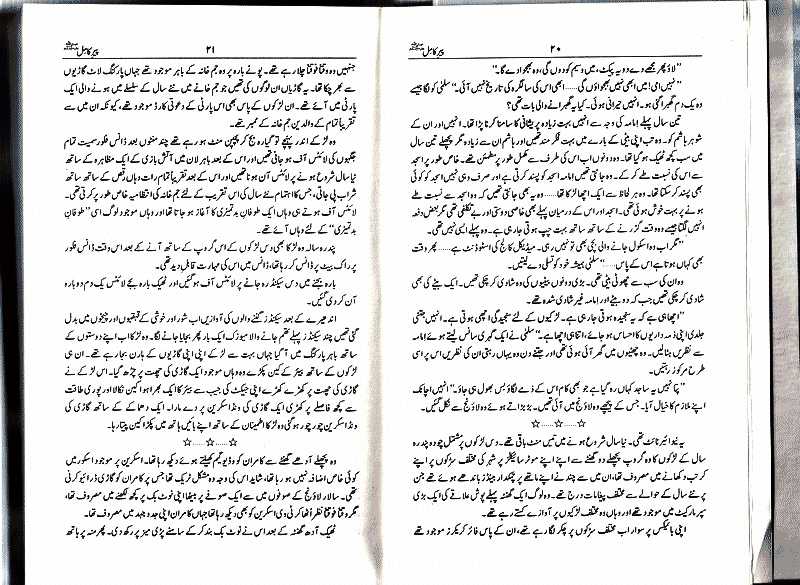 پیر کامل
۲۰
"لاؤ پھر مجھے دے دو یہ پیکٹ، میں وسیم کو دوں گی، وہ بھجوا دے گا۔"
"نہیں امی! میں ابھی نہیں بھجواؤں گی...... ابھی اس کی سالگرہ کی تاریخ نہیں آئی۔" سلمٰی کو لگا جیسے
وہ یک دم گھبرا گئی ہو۔ انہیں حیرانی ہوئی۔ کیا یہ گھبرانے والی بات تھی؟
تین سال پہلے امامہ کی وجہ سے انہیں بہت زیادہ پریشانی کا سامنا کرنا پڑا تھا۔ انہیں اور ان کے
شوہر ہاشم کو۔ وہ تب اپنی بیٹی کے بارے میں بہت فکرمند تھیں اور ہاشم ان سے زیادہ مگر پچھلے تین سال
میں سب کچھ ٹھیک ہو گیا تھا۔ وہ دونوں اب اس کی طرف سے مکمل طور پر مطمئن تھے۔ خاص طور پر اسجد
سے اس کی نسبت طے کر کے۔ وہ جانتی تھیں امامہ اسجد کو پسند کرتی ہے اور صرف وہی نہیں اسجد کو کوئی
بھی پسند کر سکتا تھا۔ وہ ہر لحاظ سے ایک اچھا لڑکا تھا...... وہ یہ بھی جانتی تھیں کہ وہ اسجد سے نسبت طے
ہونے پر بہت خوش ہوئی تھی۔ اسجد اور اس کے درمیان پہلے بھی خاصی دوستی اور بے تکلفی تھی مگر بعض دفعہ
انہیں لگتا جیسے وہ وقت گزرنے کے ساتھ ساتھ بہت چپ ہوتی جا رہی ہے۔ وہ پہلے ایسی نہیں تھی۔
"مگر اب وہ اسکول جانے والی بچی بھی تو نہیں رہی۔ میڈیکل کالج کی اسٹوڈنٹ ہے...... پھر وقت
بھی کہاں ہوتا ہے اس کے پاس......" سلمٰی ہمیشہ خود کو تسلی دے لیتیں۔
وہ ان کی سب سے چھوٹی بیٹی تھی۔ بڑی دونوں بیٹیوں کی وہ شادی کر چکی تھیں۔ ایک بیٹے کی بھی
شادی کر چکی تھیں جب کہ دو بیٹے اور امامہ غیر شادی شدہ تھے۔
"اچھا ہی ہے کہ یہ سنجیدہ ہوتی جا رہی ہے۔ لڑکیوں کے لئے سنجیدگی اچھی ہوتی ہے۔ انہیں جتنی
جلدی اپنی ذمہ داریوں کا احساس ہو جائے، اتنا ہی اچھا ہے۔" سلمٰی نے ایک گہری سانس لیتے ہوئے امامہ
سے نظریں ہٹا لیں۔ وہ چھٹیوں میں گھر آئی ہوئی تھی اور جتنے دن وہ یہاں رہتی ان کی نظریں اس پر اسی
طرح مرکوز رہتیں۔
"پتا نہیں یہ ساجد کہاں رہ گیا ہے جو بھی کام اس کے ذمے لگاؤ بس بھول ہی جاؤ۔" انہیں اچانک
اپنے ملازم کا خیال آیا۔ جس کے پیچھے وہ لاؤنج میں آئی تھیں۔ بڑبڑاتے ہوئے وہ لاؤنج سے نکل گئیں۔
☆......☆......☆
یہ نیو ایئر نائٹ تھی۔ نیا سال شروع ہونے میں تیس منٹ باقی تھے۔ دس لڑکوں پر مشتمل چودہ پندرہ
سال کے لڑکوں کا وہ گروپ پچھلے دو گھنٹے سے اپنے اپنے موٹر سائیکلز پر شہر کی مختلف سڑکوں پر اپنے
کرتب دکھانے میں مصروف تھا، ان میں سے چند نے اپنے ماتھے پر چمکدار بینڈز باندھے ہوئے تھے جن
پر نئے سال کے حوالے سے مختلف پیغامات درج تھے۔ وہ لوگ ایک گھنٹہ پہلے پوش علاقے کی ایک بڑی
سپر مارکیٹ میں موجود تھے اور وہاں وہ مختلف لڑکیوں پر آوازے کستے رہے تھے۔
اپنی بائیکس پر سوار اب مختلف سڑکوں پر چکر لگا رہے تھے، ان کے پاس فائر کریکرز موجود تھے
پیر کامل
۲۱
جنہیں وہ وقتاً فوقتاً چلا رہے تھے۔ پونے بارہ پر وہ جم خانہ کے باہر موجود تھے جہاں پارکنگ لاٹ گاڑیوں
سے بھر چکا تھا۔ یہ گاڑیاں ان لوگوں کی تھیں جو جم خانے میں نئے سال کے سلسلے میں ہونے والی ایک
پارٹی میں آئے تھے۔ ان لڑکوں کے پاس بھی اس پارٹی کے دعوتی کارڈ موجود تھے، کیونکہ ان میں سے
تقریباً تمام کے والدین جم خانہ کے ممبر تھے۔
وہ لڑکے اندر پہنچے تو گیارہ بج کر پچپن منٹ ہو رہے تھے چند منٹوں بعد ڈانس فلور سمیت تمام
جگہوں کی لائٹس آف ہو جانی تھیں اور اس کے بعد باہر لان میں آتش بازی کے ایک مظاہرہ کے ساتھ
نیا سال شروع ہونے پر لائٹس آن ہونا تھیں اور اس کے بعد تقریباً تمام رات وہاں رقص کے ساتھ ساتھ
شراب پی جاتی، جس کا اہتمام نئے سال کی اس تقریب کے لئے جم خانہ کی انتظامیہ خاص طور پر کرتی تھی۔
لائٹس آف ہوتے ہی وہاں ایک طوفان بدتمیزی کا آغاز ہو جاتا تھا اور وہاں موجود لوگ اسی "طوفان
بدتمیزی" کے لئے وہاں آئے تھے۔
پندرہ سالہ وہ لڑکا بھی دس لڑکوں کے اس گروپ کے ساتھ آنے کے بعد اس وقت ڈانس فلور
پر راک بیٹ پر ڈانس کر رہا تھا، ڈانس میں اس کی مہارت قابل دید تھی۔
بارہ بجنے میں دس سیکنڈ رہ جانے پر لائٹس آف ہو گئیں اور ٹھیک بارہ بجے لائٹس یک دم دوبارہ
آن کر دی گئیں۔
اندھیرے کے بعد سیکنڈز گننے والوں کی آوازیں اب شور اور خوشی کے قہقہوں اور چیخوں میں بدل
گئی تھیں چند سیکنڈز پہلے تھم جانے والا میوزک ایک بار پھر بجایا جانے لگا۔ وہ لڑکا اب اپنے دوستوں کے
ساتھ باہر پارکنگ میں آ گیا جہاں بہت سے لڑکے اپنی اپنی گاڑیوں کے ہارن بجا رہے تھے۔ ان ہی
لڑکوں کے ساتھ بیئر کے کین پکڑے وہ وہاں موجود ایک گاڑی کی چھت پر چڑھ گیا۔ اس لڑکے نے
گاڑی کی چھت پر کھڑے کھڑے اپنی جیکٹ کی جیب سے بیئر کا ایک بھرا ہوا کین نکالا اور پوری طاقت
سے کچھ فاصلے پر کھڑی ایک گاڑی کی ونڈ اسکرین پر دے مارا۔ ایک دھماکے کے ساتھ گاڑی کی
ونڈ اسکرین چور چور ہو گئی وہ لڑکا اطمینان کے ساتھ اپنے بائیں ہاتھ میں پکڑا کین پیتا رہا۔
☆......☆......☆
وہ پچھلے آدھے گھنٹے سے کامران کو وڈیو گیم کھیلتے ہوئے دیکھ رہا تھا۔ اسکرین پر موجود اسکور میں
کوئی خاص اضافہ نہیں ہو رہا تھا، شاید اس کی وجہ وہ مشکل ٹریک تھا جس پر کامران کو گاڑی ڈرائیو کرنی
تھی۔ سالار لاؤنج کے صوفوں میں سے ایک صوفے پر بیٹھا اپنی نوٹ بک پر کچھ لکھنے میں مصروف تھا،
مگر وقتاً فوقتاً نظر اُٹھا کر ٹی وی اسکرین کو بھی دیکھ رہا تھا جہاں کامران اپنی جدوجہد میں مصروف تھا۔
ٹھیک آدھ گھنٹہ کے بعد اس نے نوٹ بک بند کر کے سامنے پڑی میز پر رکھ دی۔ پھر منہ پر ہاتھ